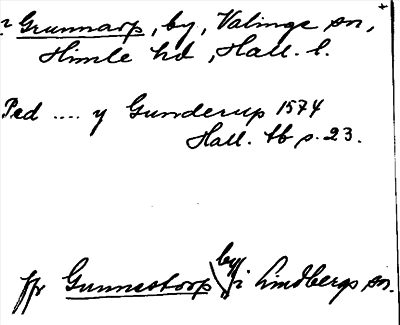 Grunnarp, by, Valinge sn,
Himle hd, Hall. l.
Ped .... y Gunderup 1574
Hall. tb s. 23.
jfr Gunnestorp by i Lindbergs sn.